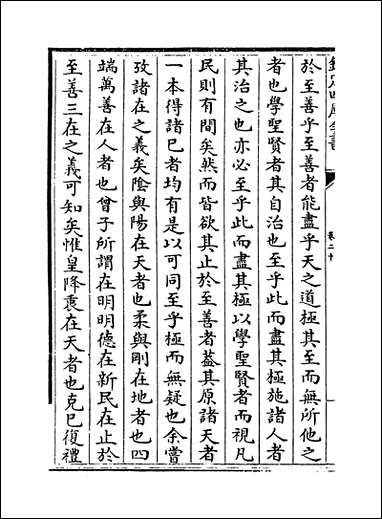 欽定四庫全書
卷二十
於至善乎至善者能盡乎天之道極其至而無所他之
者也學聖賢者其自治也至乎此而盡其極施諸人者
其治之也亦必至乎此而盡其極以學聖賢者而視凡
民則有間矣然而皆欲其止於至善者葢其原諸天者
一本得諸已者均有是以可同至乎極而無疑也余嘗
攷諸在之義矣陰與陽在天者也柔與剛在地者也四
端萬善在人者也曾子所謂在明明德在新民在止於
至善三在之義可知矣惟皇降衷在天者也克已復禮